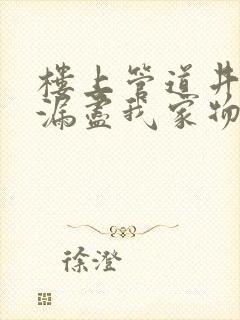 楼上管道井
漏尽我家物
徐澄